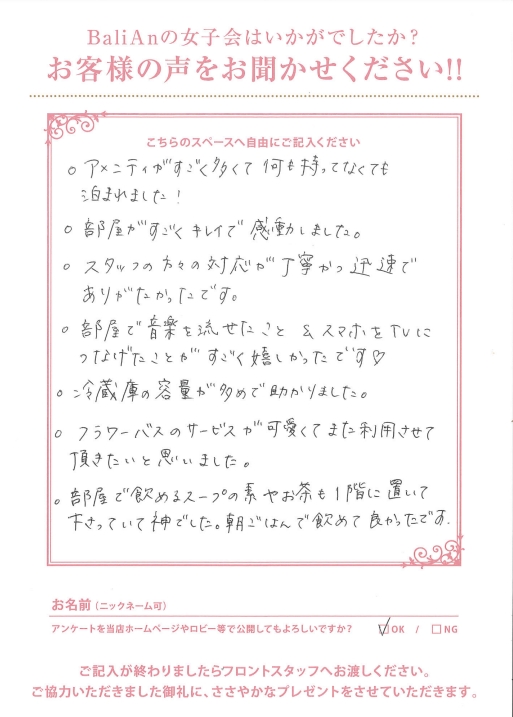 BaliAnの女子会はいかがでしたか?
お客様の声をお聞かせください!!
こちらのスペースへ自由にご記入ください
○ アメニティがすごく多くて 何も持ってなくても
泊まれました!
○ 部屋がすごくキレイで 感動しました。
○ スタッフの方々の対応が丁寧かつ迅速で
ありがたかったです。
○ 部屋で音楽を流せたこと & スマホをTVに
つなげたことが すごく嬉しかったです♡
○ 冷蔵庫の容量が多めで助かりました。
○ フラワーバスのサービスが可愛くてまた利用させて
頂きたいと思いました。
○ 部屋で飲めるスープの素やお茶も1階に置いて
下さっていて神でした。朝ごはんで飲めて良かったです.
お名前(ニックネーム可)
アンケートを当店ホームページやロビー等で公開してもよろしいですか? ☑OK / □NG
ご記入が終わりましたらフロントスタッフへお渡しください。
ご協力いただきました御礼に、ささやかなプレゼントをさせていただきます。